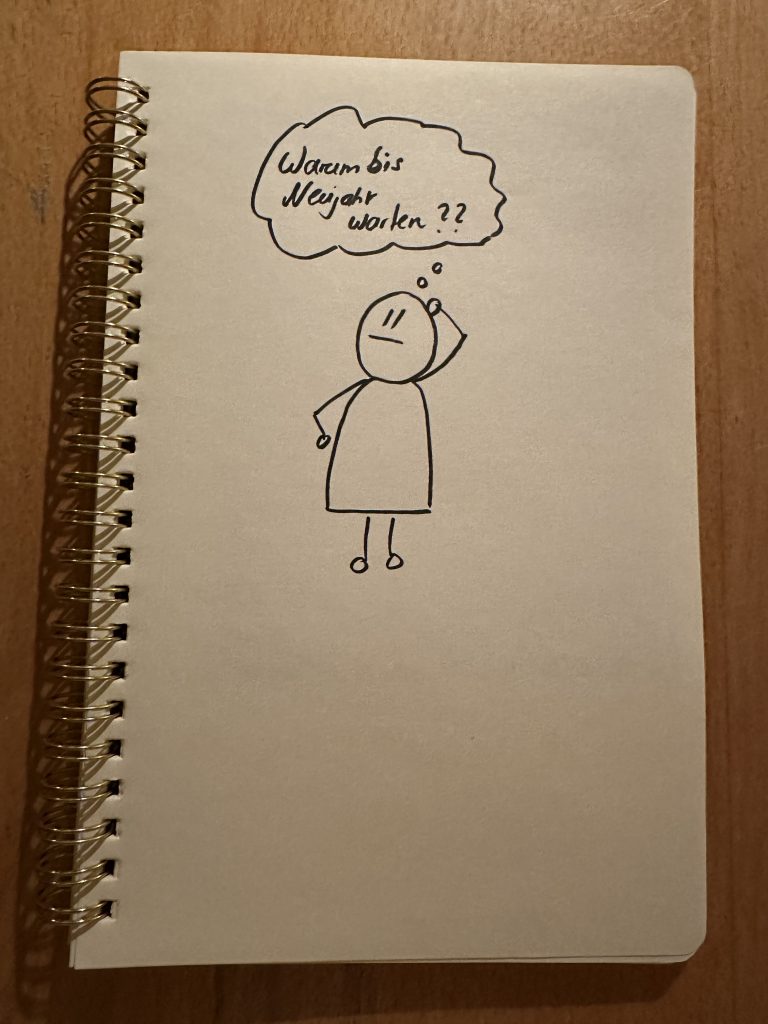 Warum bis
Neujahr
warten??